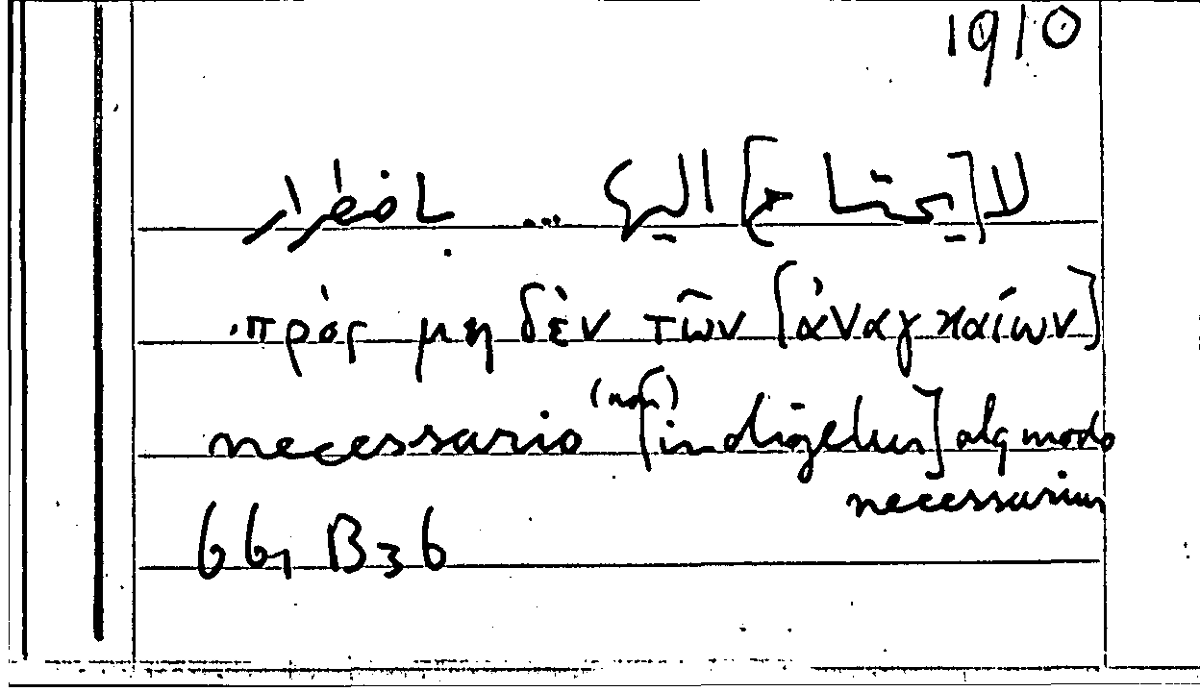 1910
لا [يحتاج] اليها ... باضطرار
πρὸς μηδὲν τῶν [ἀναγκαίων]
necessario (non) [indigetur] alq modo
necessarium
661 B36